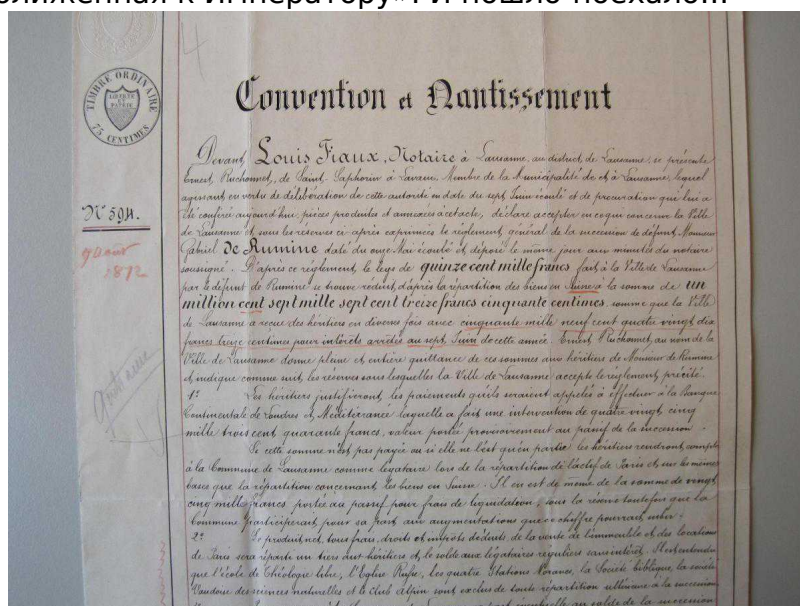 ближенная к императору». И пошло-поехало...
4
TIMBRE ORDINAIRE
LIBERTÉ ET PATRIE
75 CENTIMES
Convention et Nantissement
Devant Louis Fiaux, Notaire à Lausanne, au district de Lausanne, se présente
Ernest Ruchonnet, de Saint-Saphorin à Lavaux, Membre de la Municipalité de et à Lausanne, lequel
agissant en vertu de délibération de cette autorité en date du sept Juin écoulé et de procuration qui lui a
été conférée aujourd'hui, pièces produites et annexées à cet acte, déclare accepter en ce qui concerne la Ville
N° 594.
de Lausanne et sous les réserves ci-après exprimées le règlement général de la succession de défunt Monsieur
Gabriel de Rumine daté du onze Mai écoulé et déposé le même jour aux minutes du notaire
9 Août
1872
soussigné. D'après ce règlement, le legs de quinze cent mille francs fait à la Ville de Lausanne
par le défunt de Rumine se trouve réduit, d'après la répartition des biens en Suisse à la somme de un
million cent sept mille sept cent treize francs cinquante centimes, somme que la Ville
de Lausanne a reçue des héritiers en diverses fois avec cinquante mille neuf cent quatre vingt dix
francs treize centimes pour intérêts arrêtés au sept Juin de cette année. Ernest Ruchonnet, au nom de la
Ville de Lausanne donne pleine et entière quittance de ces sommes aux héritiers de Monsieur de Rumine
et indique comme suit les réserves sous lesquelles la Ville de Lausanne accepte le règlement précité.
1° Les héritiers justifieront les paiements qu'ils seraient appelés à effectuer à la Banque
Continentale de Londres et Méditerranée laquelle a fait une intervention de quatre vingt cinq
mille trois cent quarante francs, valeur portée provisoirement au passif de la succession.
Si cette somme n'est pas payée ou si elle ne l'est qu'en partie les héritiers rendront compte
à la Commune de Lausanne comme légataire lors de la répartition de l'actif de Paris et sur les mêmes
bases que la répartition concernant les biens en Suisse. Il en est de même de la somme de vingt
cinq mille francs portée au passif pour frais de liquidation, sous la réserve toutefois que la
Commune participerait pour sa part aux augmentations que ce chiffre pourrait subir.
2° Le produit net, tous frais, droits et impôts déduits de la vente de l'immeuble et des locations
de Paris sera réparti un tiers aux héritiers et le solde aux légataires réguliers sans intérêt. Il est entendu
que l'école de Théologie libre, l'Eglise Russe, les quatre Stations, la Société biblique, la société
Vaudoise des sciences naturelles et le Club Alpin sont exclus de toute répartition ultérieure à la succession
au solde de la succession